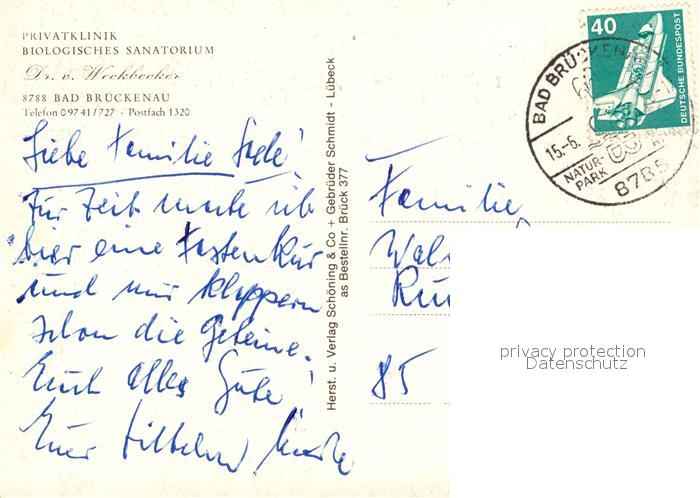 PRIVATKLINIK
BIOLOGISCHES SANATORIUM
Dr. v. Weckbecker
8788 BAD BRÜCKENAU
Telefon 09741/727 · Postfach 1320
Liebe Familie
Zur Zeit mache ich
hier eine Fastenkur
und mir klappern
schon die Gebeine.
Euch alles Gute!
Euer
Herst. u. Verlag Schöning & Co + Gebrüder Schmidt - Lübeck
as Bestellnr. Brück 377
40
DEUTSCHE BUNDESPOST
BAD BRÜCKENAU
15.-6.
NATUR-
PARK
8788
Familie
85
privacy protection
Datenschutz